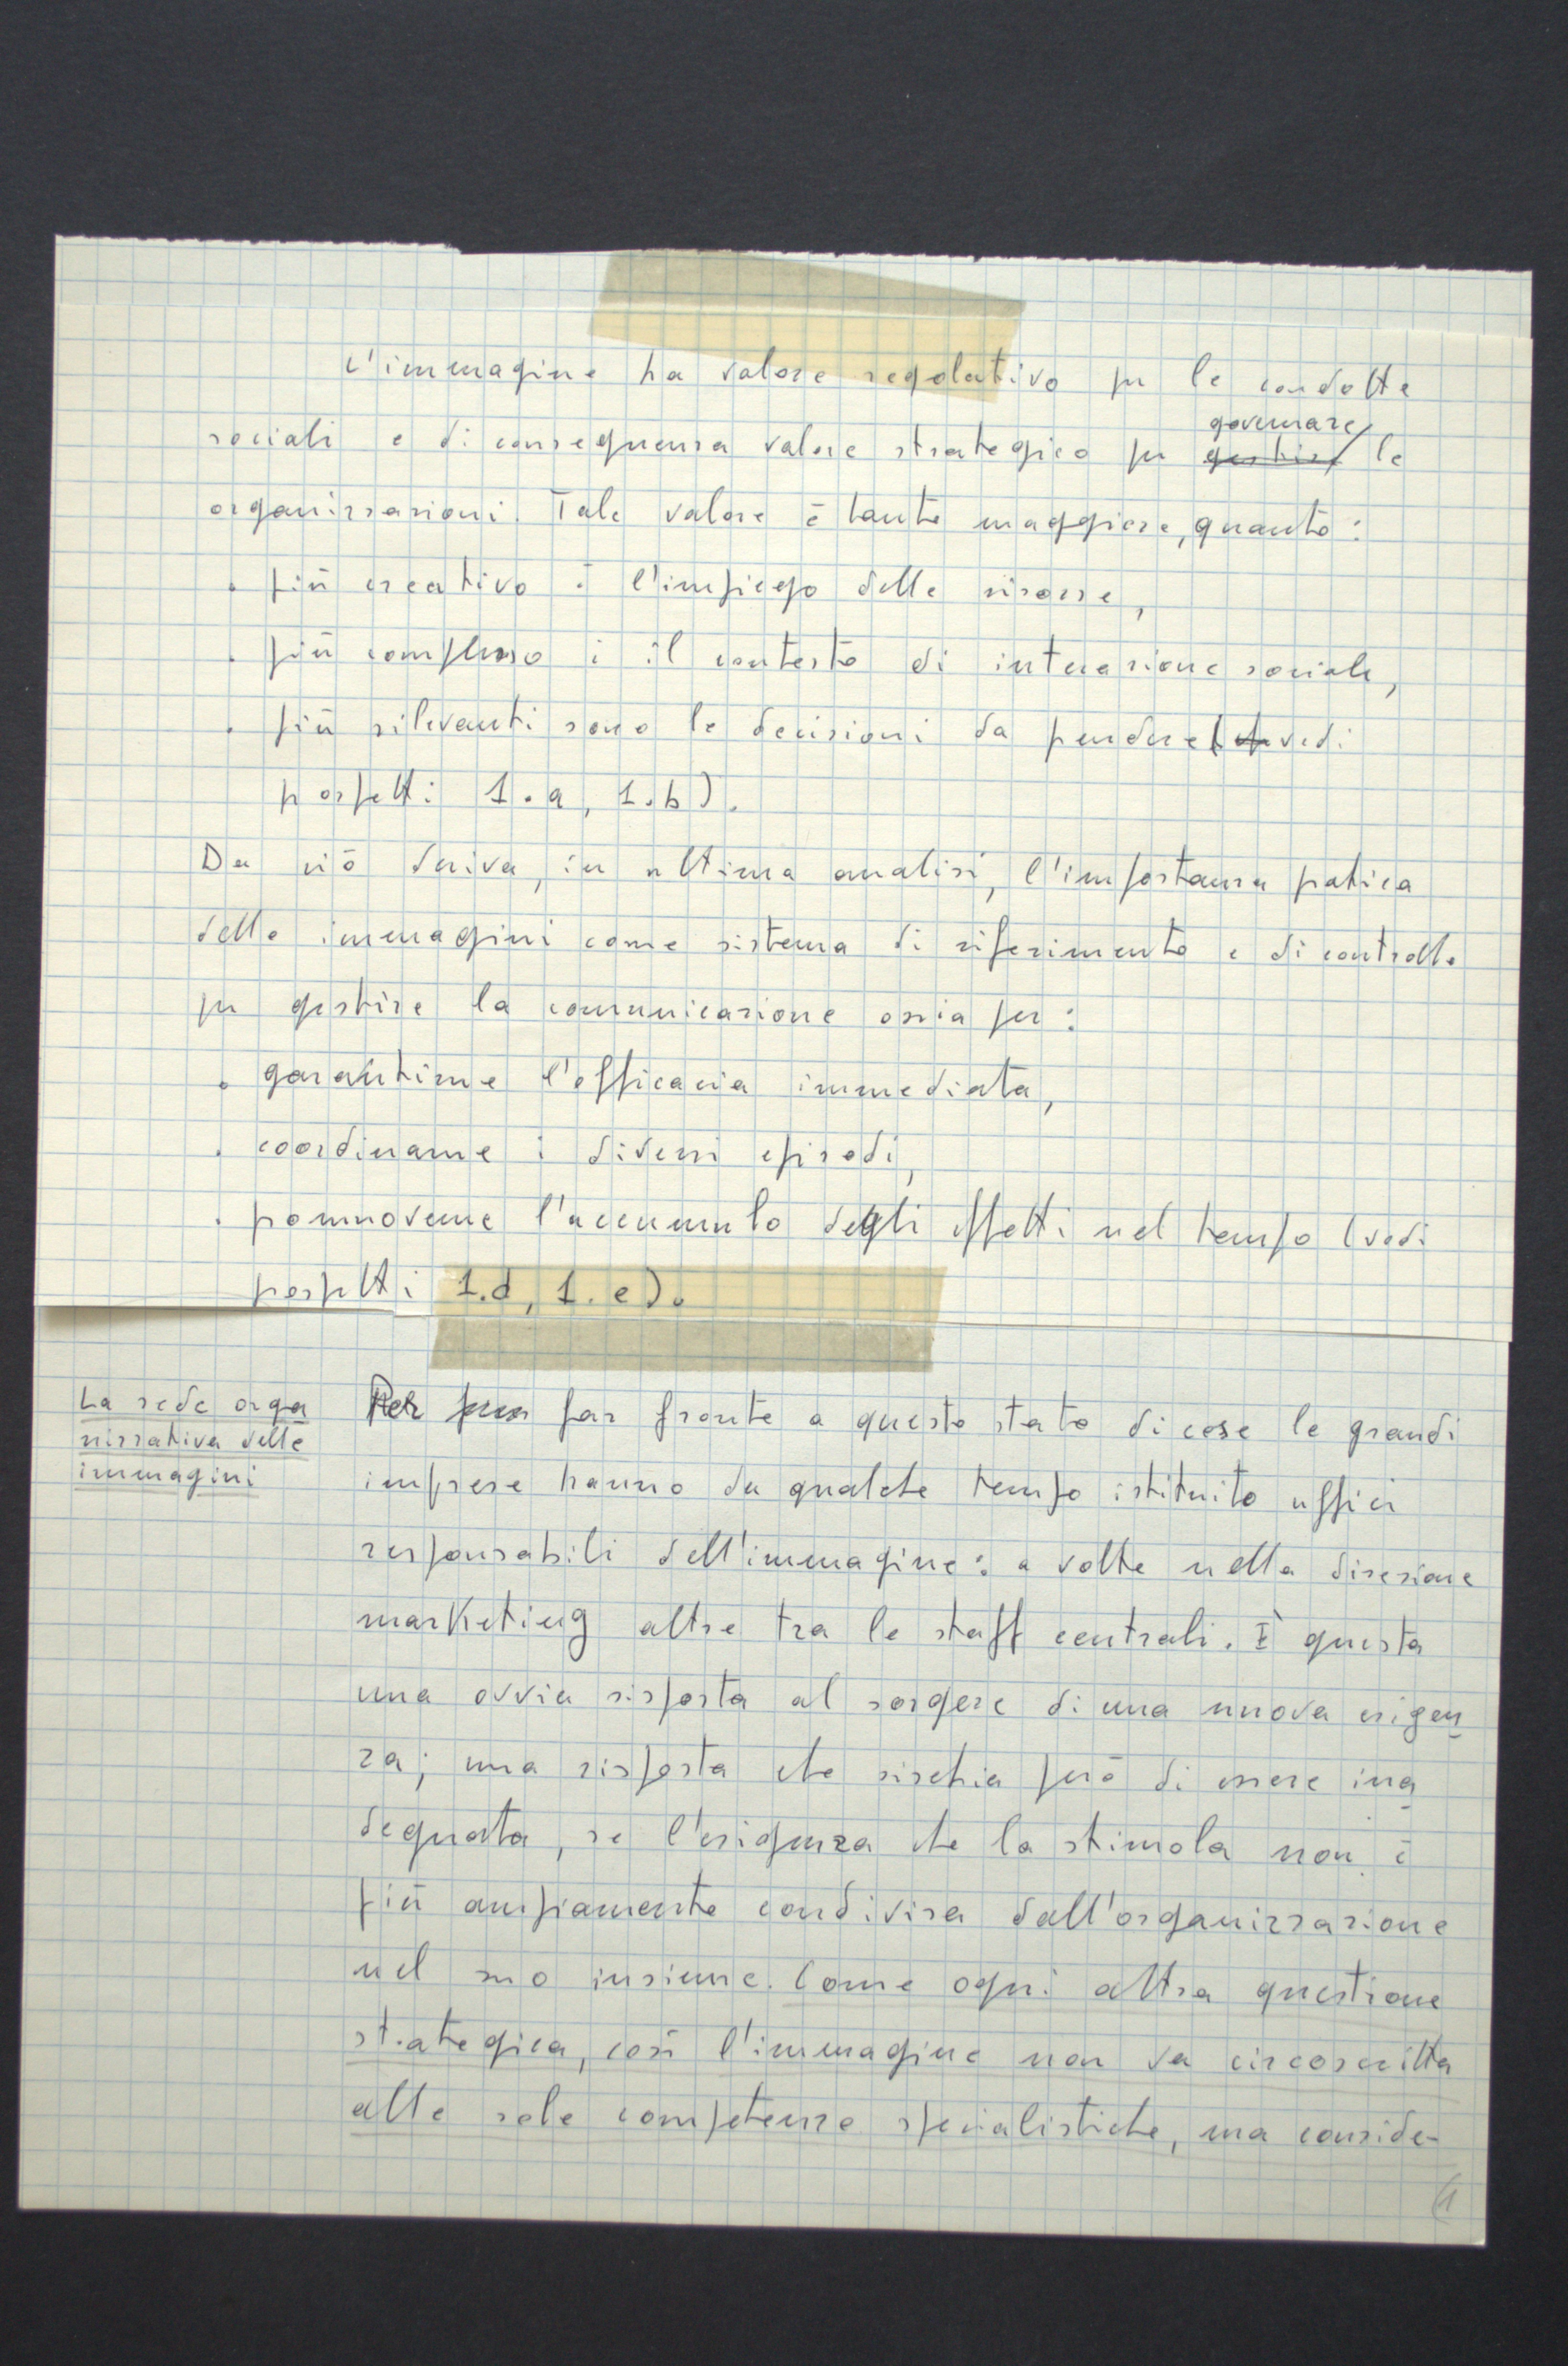 L'immagine ha valore regolativo per le condotte
sociali e di conseguenza valore strategico per governare gestire le
organizzazioni. Tale valore è tanto maggiore, quanto:
. più creativo è l'impiego delle risorse,
. più complesso è il contesto di interazione sociale,
. più rilevanti sono le decisioni da prendere (vedi
prospetti 1.a, 1.b).
Da ciò deriva, in ultima analisi, l'importanza pratica
delle immagini come sistema di riferimento e di controllo
per gestire la comunicazione ossia per:
. garantirne l'efficacia immediata,
. coordinarne i diversi episodi,
. promuoverne l'accumulo degli effetti nel tempo (vedi
prospetti 1.d, 1.e).
La sede orga
nizzativa delle
immagini
Per far fronte a questo stato di cose le grandi
imprese hanno da qualche tempo istituito uffici
responsabili dell'immagine: a volte nella direzione
marketing altre tra le staff centrali. È questa
una ovvia risposta al sorgere di una nuova esigen
za; una risposta che rischia però di essere ina
deguata, se l'esigenza che la stimola non è
più ampiamente condivisa dall'organizzazione
nel suo insieme. Come ogni altra questione
strategica, così l'immagine non va circoscritta
alle sole competenze specialistiche, ma conside-
(1